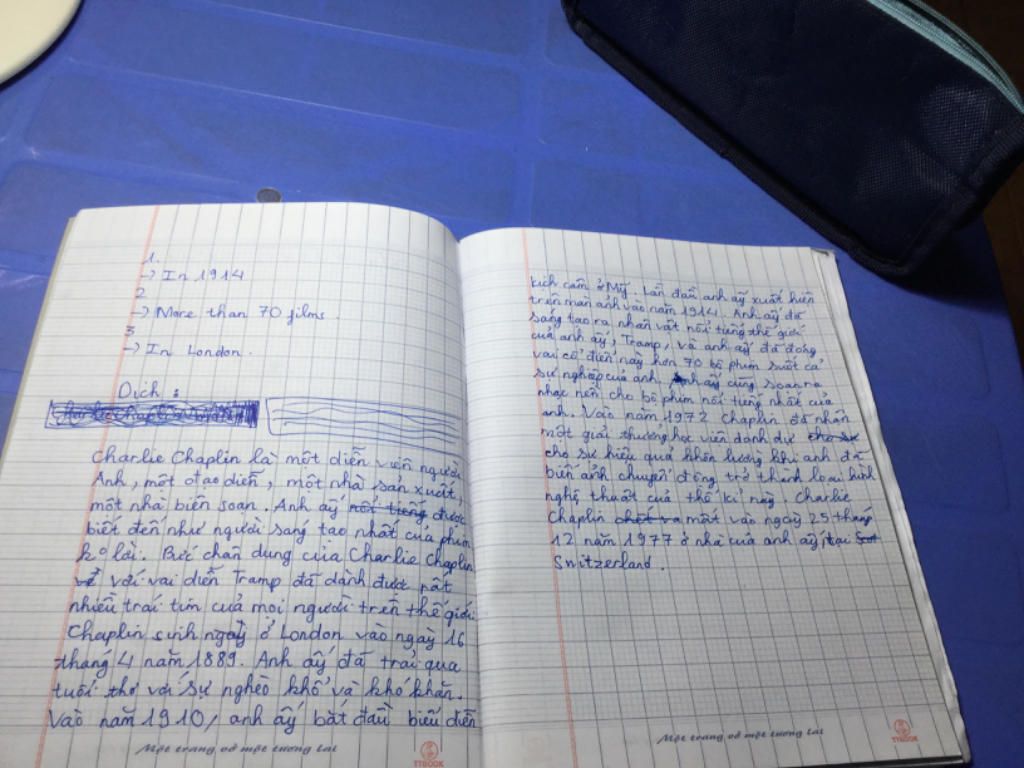 1.
-> In 1914
2
-> More than 70 films.
3
-> In London.
Dịch:
Charlie Chaplin là một diễn viên người
Anh, một đạo diễn, một nhà sản xuất,
một nhà biên soạn. Anh ấy nổi tiếng được
biết đến như người sáng tạo nhất của phim
ko lời. Bức chân dung của Charlie Chaplin
với vai diễn Tramp đã dành được rất
nhiều trái tim của mọi người trên thế giới.
Chaplin sinh ngày ở London vào ngày 16
tháng 4 năm 1889. Anh ấy đã trải qua
tuổi thơ với sự nghèo khổ và khó khăn.
Vào năm 1910, anh ấy bắt đầu biểu diễn
kịch câm ở Mỹ. Lần đầu anh ấy xuất hiện
trên màn ảnh vào năm 1914. Anh ấy đã
sáng tạo ra nhân vật nổi tiếng thế giới
của anh ấy, Tramp, và anh ấy đã đóng
vai cổ điển này hơn 70 bộ phim suốt cả
sự nghiệp của anh. Anh ấy cũng soạn ra
nhạc nền cho bộ phim nổi tiếng nhất của
anh. Vào năm 1972 Chaplin đã nhận
một giải thưởng học viện danh dự
cho sự hiệu quả khôn lường khi anh đã
biến ảnh chuyển động trở thành loại hình
nghệ thuật của thế kỉ này. Charlie
Chaplin chết va mất vào ngày 25 tháng
12 năm 1977 ở nhà của anh ấy, tại
Switzerland.
Một trang vở một tương lai
TTBOOK
Một trang vở một tương lai
TTBOOK